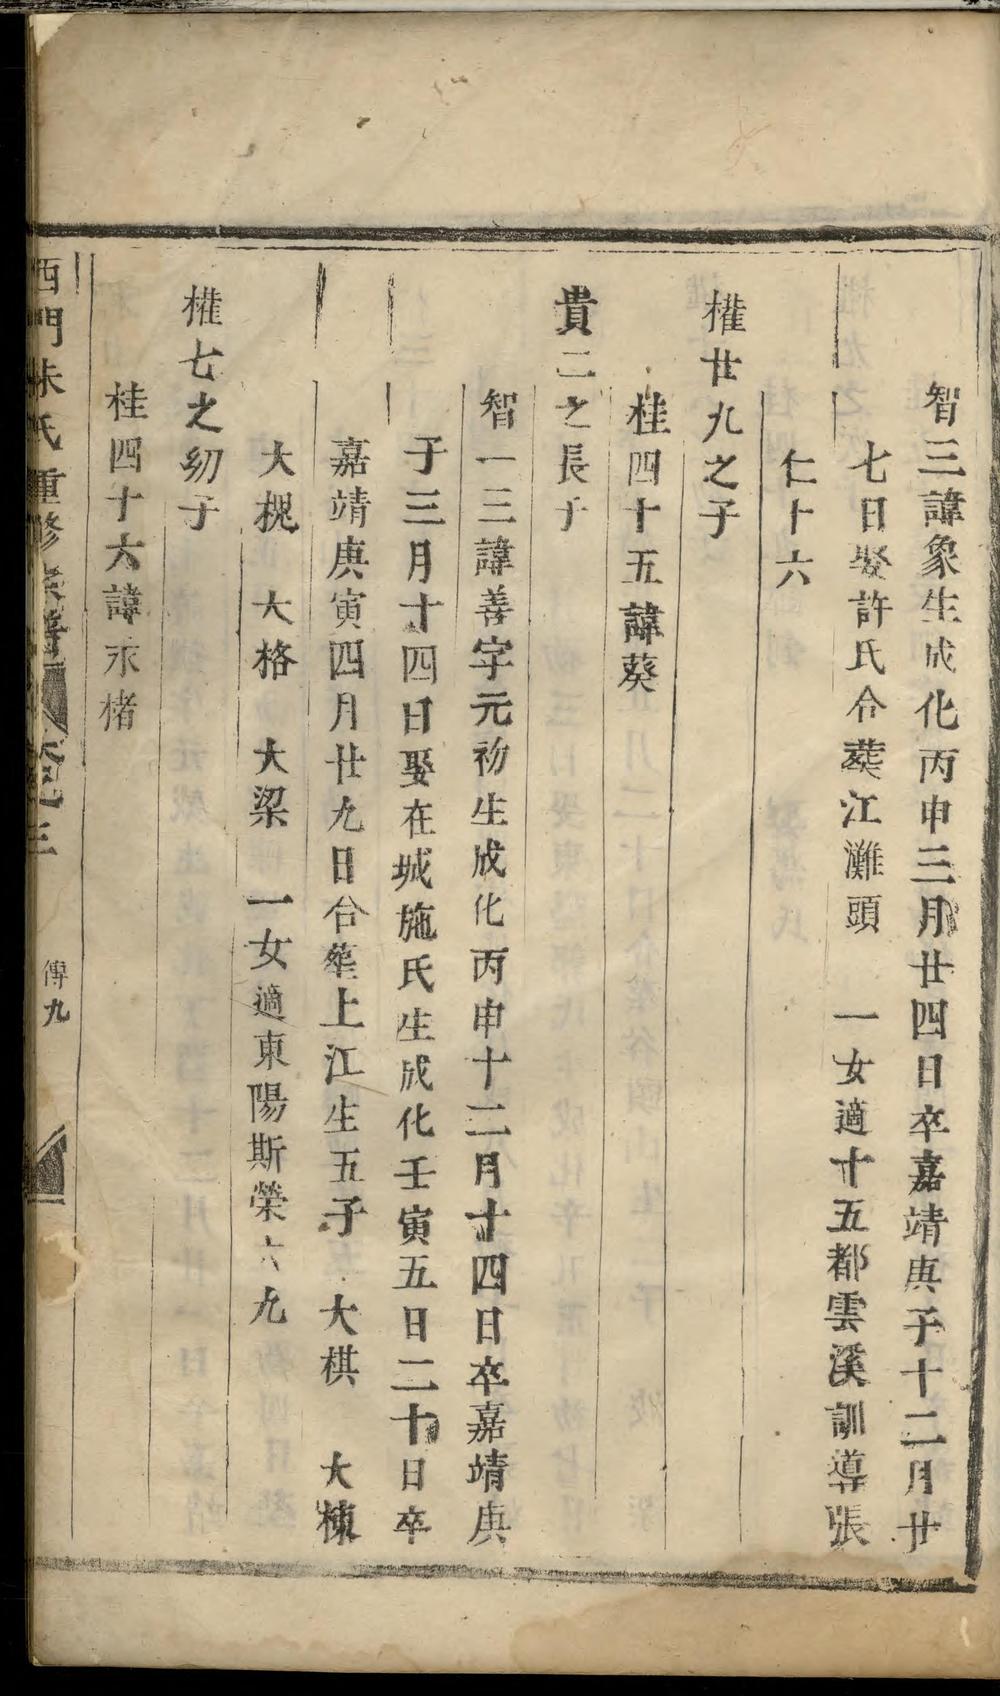 智三諱象生成化丙申三月廿四日卒嘉靖庚子十二月廿
七日娶許氏合葬江灘頭 一女適十五都雲溪訓導張
仁十六
權廿九之子
桂四十五諱葵
貴二之長子
智一三諱善字元初生成化丙申十二月十四日卒嘉靖庚
子三月十四日娶在城施氏生成化壬寅五日二十日卒
嘉靖庚寅四月廿九日合塟上江生五子 大棋 大棟
大桄 大格 大梁 一女適東陽斯榮六九
權七之幼子
桂四十六諱永楮
西門朱氏重修宗譜 卷三 傳九